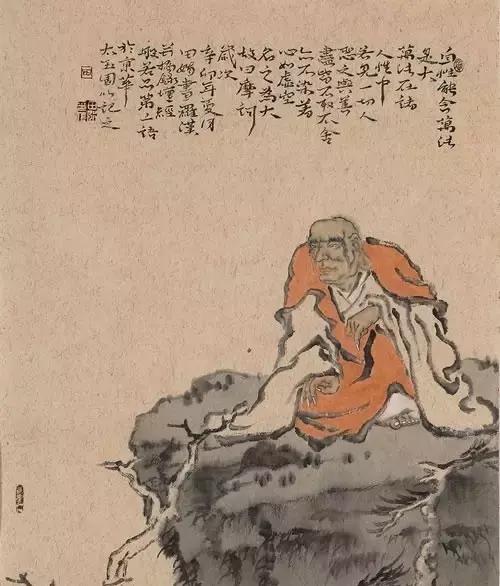 自性能含萬法
是大
萬法在諸
人性中
若見一切人
惡之與善
盡皆不取不舍
亦不染著
心如虛空
名之為大
故曰摩訶
歲次
辛卯年夏月
田 羅漢
並摘錄壇經
般若品第二語
於京華
太玉園以記之